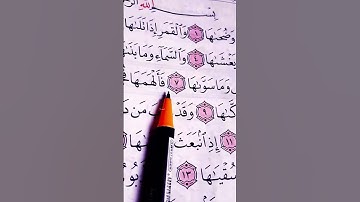 بِسْمِ ٱللَّهِ
وَضُحَىٰهَا ١ وَٱلْقَمَرِ إِذَا تَلَىٰهَا
يَغْشَىٰهَا ٤ وَٱلسَّمَآءِ وَمَا بَنَىٰهَا
وَمَا سَوَّىٰهَا ٧ فَأَلْهَمَهَا
كَّىٰهَا ٩ وَقَدْ مَن
١١ إِذِ ٱنۢبَعَثَ
سُقْيَٰهَا ١٣